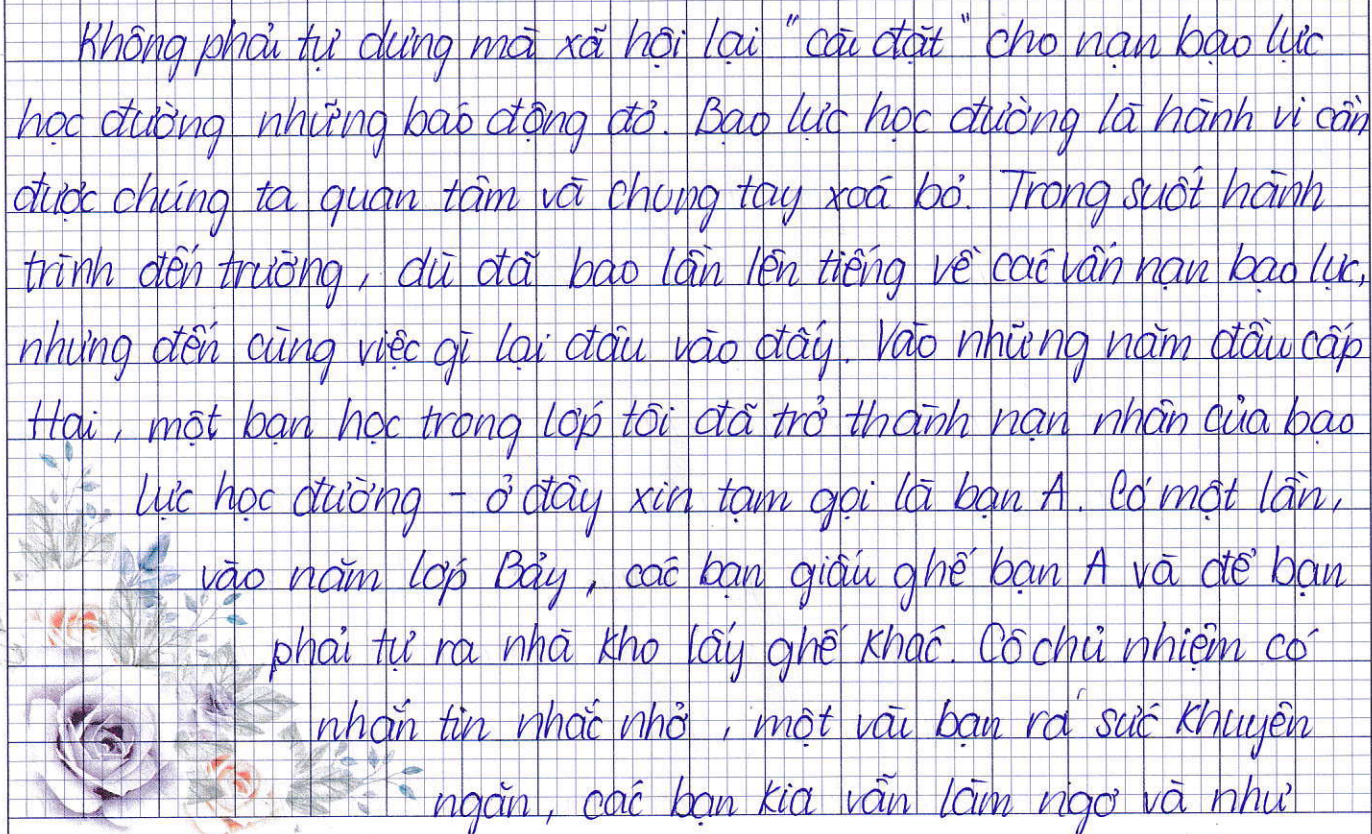 Không phải tự dưng mà xã hội lại "cài đặt" cho nạn bạo lực
học đường những báo động đỏ. Bạo lực học đường là hành vi cần
được chúng ta quan tâm và chung tay xoá bỏ. Trong suốt hành
trình đến trường, dù đã bao lần lên tiếng về các vấn nạn bạo lực,
nhưng đến cùng việc gì lại đâu vào đấy. Vào những năm đầu cấp
Hai, một bạn học trong lớp tôi đã trở thành nạn nhân của bạo
lực học đường - ở đây xin tạm gọi là bạn A. Có một lần,
vào năm lớp Bảy, các bạn giấu ghế bạn A và để bạn
phải tự ra nhà kho lấy ghế khác. Cô chủ nhiệm có
nhắn tin nhắc nhở, một vài bạn ra sức khuyên
ngăn, các bạn kia vẫn làm ngơ và như